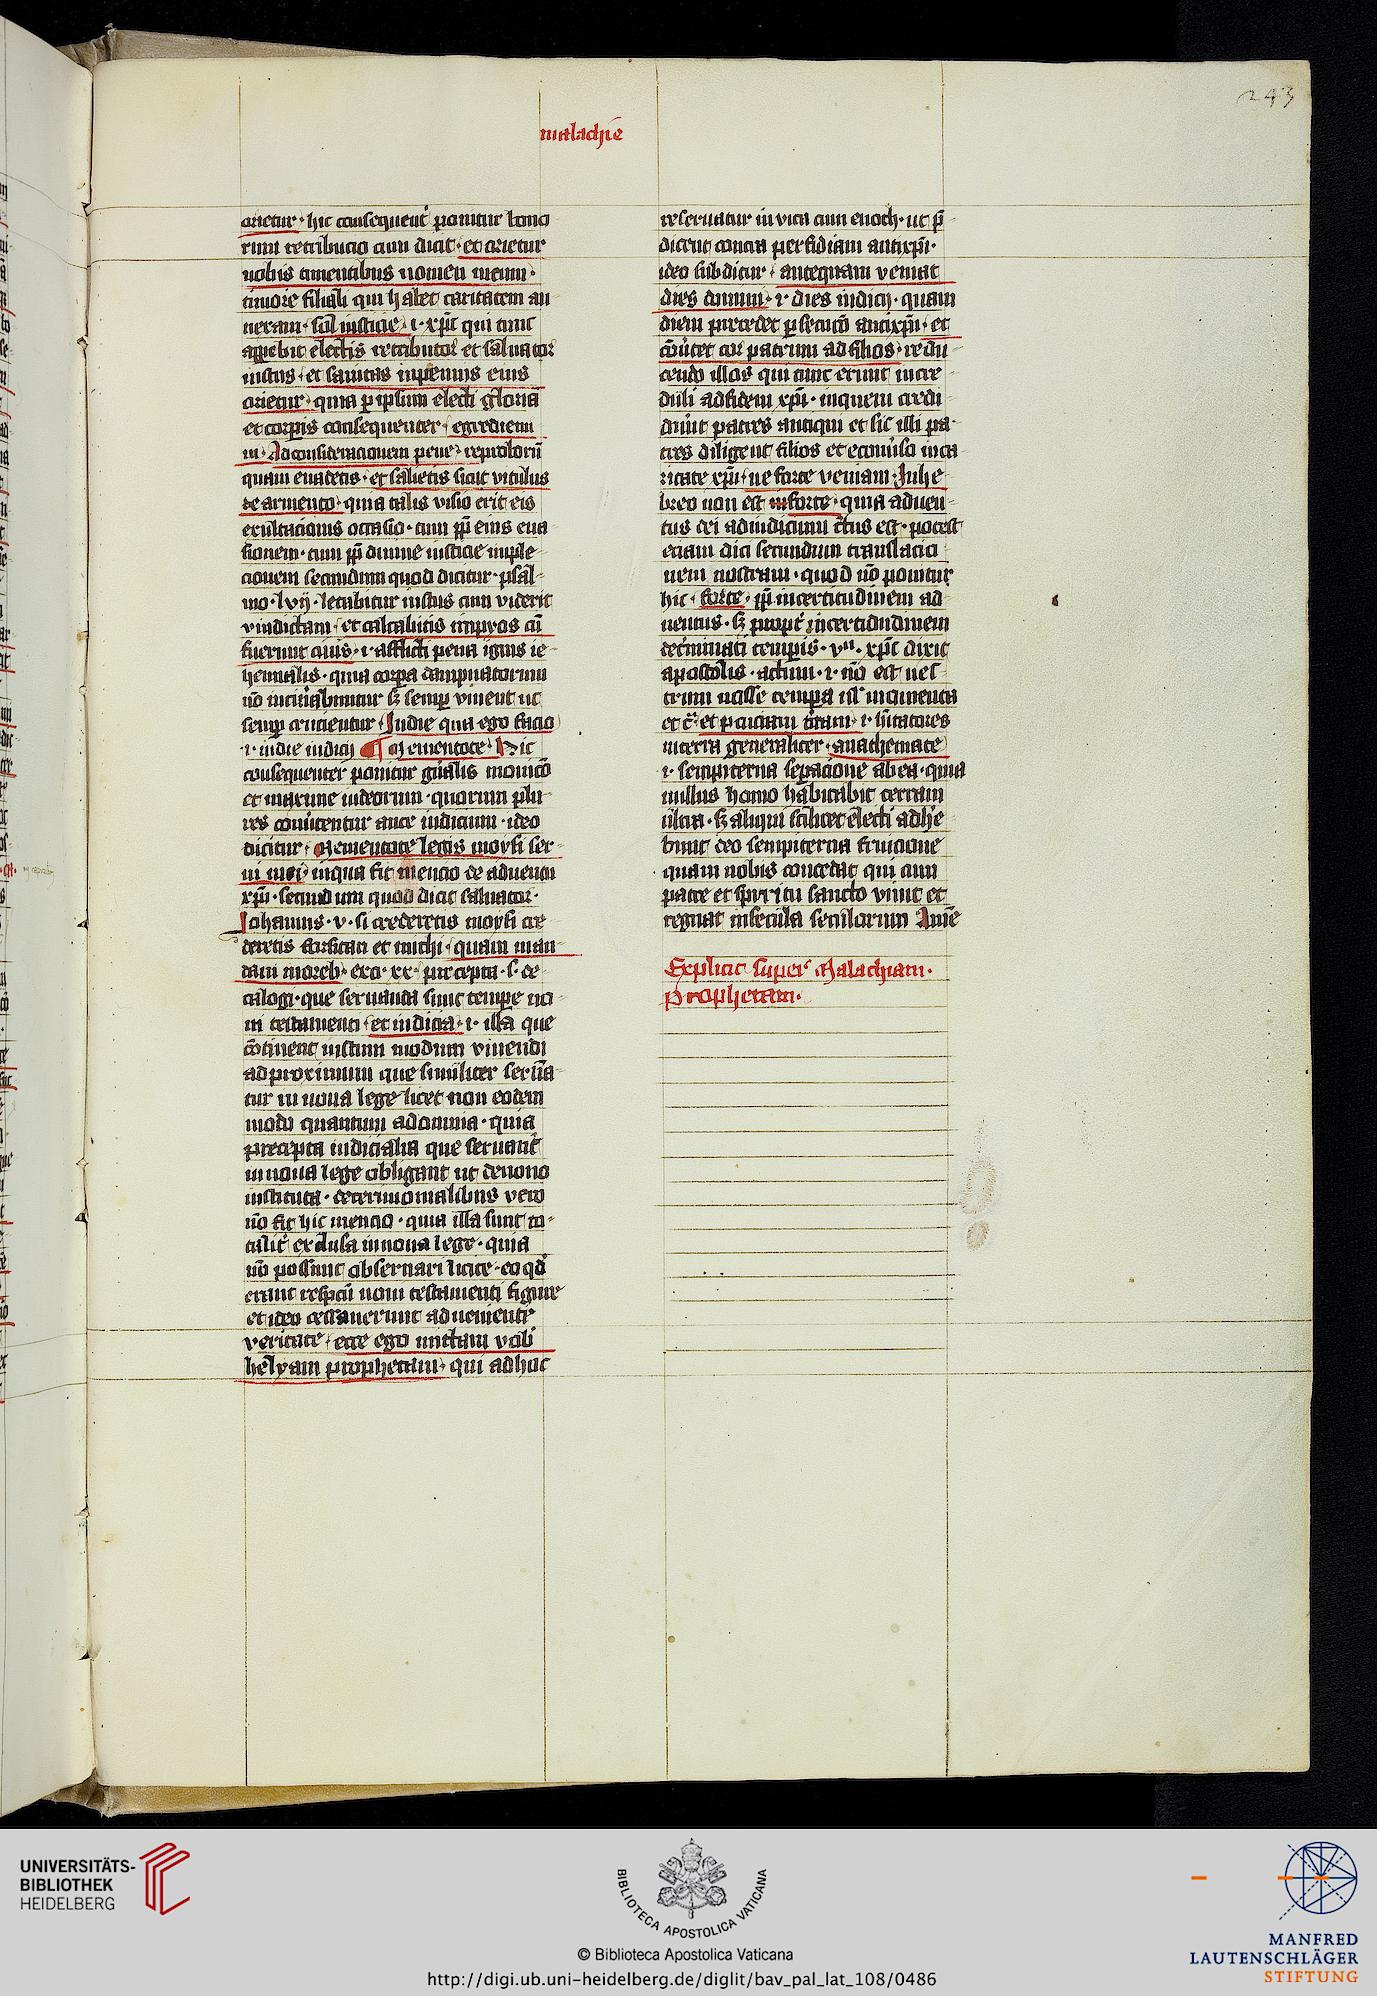 243
malachie
orietur · hic consequent᷑ ponitur bono
rum retribucio cum dicit · et orietur
uobis timentibus nomen meum ·
timore filiali qui habet caritatem an
nexam · sol iusticie · i · xp̄c qui tunc
app̄ebit electis retributor et saluator
iustus · et sanitas inpennis eius
orietur · quia ꝑ ipsum electi gloriā
et corpꝑis consequenter · egrediemi
ni · Ad consideracionem pene · reproborū
quam euadetis · et salietis sicut vitulus
de armento · quia talis visio erit eis
exultacionis occasio · tum ꝓp̄ eius eua
sionem · tum ꝓp̄ diuine iusticie imple
cionem secundum quod dicitur · psal
mo · lvij · letabitur iustus cum viderit
vindictam · et calcabitis impyos cū
fuerint cinis · i · afflicti pena ignis ie
hennalis · quia corꝑa dampnatorum
nō incin̄abuntur sꝫ semꝑ viuent ut
semꝑ crucientur · In die qua ego facio
· i · in die iudicij ¶ Mementote · Hic
consequenter ponitur gn̄alis monicō
et maxime iudeorum · quorum plu
res conuertentur ante iudicium · ideo
dicitur · Mementote legis moysi ser
ui mei · in qua fit mencio de aduentu
xp̄i · secundum quod dicit saluator ·
Johannis · v · si crederetis moysi cre
deretis forsitan et michi · quam man
daui in oreb · exo · xx · precepta · s · de
calogi · que seruanda sunt tempe no
ui testamenti · et iudicia · i · illa que
cōtinent iustum modum viuendi
ad proximum que similiter serua
tur in noua lege licet non eodem
modo quantum ad omnia · quia
precepta iudicialia que seruant᷑
in noua lege obligant ut de nouo
instituta · de cerimonialibus vero
nō fit hic mencio · quia illa sunt to
talit᷑ exclusa in noua lege · quia
nō possunt obseruari licite · eo qd̄
erant respcū noui testamenti figure
et ideo cessauerunt adueniente
veritate · ecce ego mittam vob̄
helyam prophetam · qui adhuc
reseruatur in vita cum enoch · ut p̄
dicent contra perfidiam antixp̄i ·
ideo subditur · antequam veniat
dies domini · i · dies iudicij · quam
diem precedet ꝑsecucō antixp̄i · et
cōuertet cor patrum ad filios · redu
cendo illos qui tunc erunt incre
duli ad fidem xp̄i · in quem credi
dērūt patres antiqui et sic illi pa
tres diligent filios et econuerso in ca
ritate xp̄i · ne forte veniam · In he
breo non est forte · quia aduen
tus dei ad iudicium c̄tus est · potest
eciam dici secundum translacio
nem nostram · quod nō ponitur
hic · forte · ꝓp̄ incertitudinem ad
uentus · sꝫ propt᷑ incertidudinem
determinati temporis · vn̄ · xp̄c dixit
apostolis · actuum · i · nō est ues
trum nosse tempora uel momenta
et c̄ · et percuciam terram · i · hītatores
in terra generaliter · anathemate
· i · sempiterna seꝑacione ab ea · quia
nullus homo habitabit terram
ultra · sꝫ aliqui scilicet electi adhe
bunt deo sempiterna fruicione
quam nobis concedat qui cum
patre et spiritu sancto viuit et
regnat in secula seculorum Amē
Explicit super Malachiam ·
Prophetam ·
UNIVERSITÄTS-
BIBLIOTHEK
HEIDELBERG
BIBLIOTECA APOSTOLICA VATICANA
© Biblioteca Apostolica Vaticana
http://digi.ub.uni-heidelberg.de/diglit/bav_pal_lat_108/0486
MANFRED
LAUTENSCHLÄGER
STIFTUNG